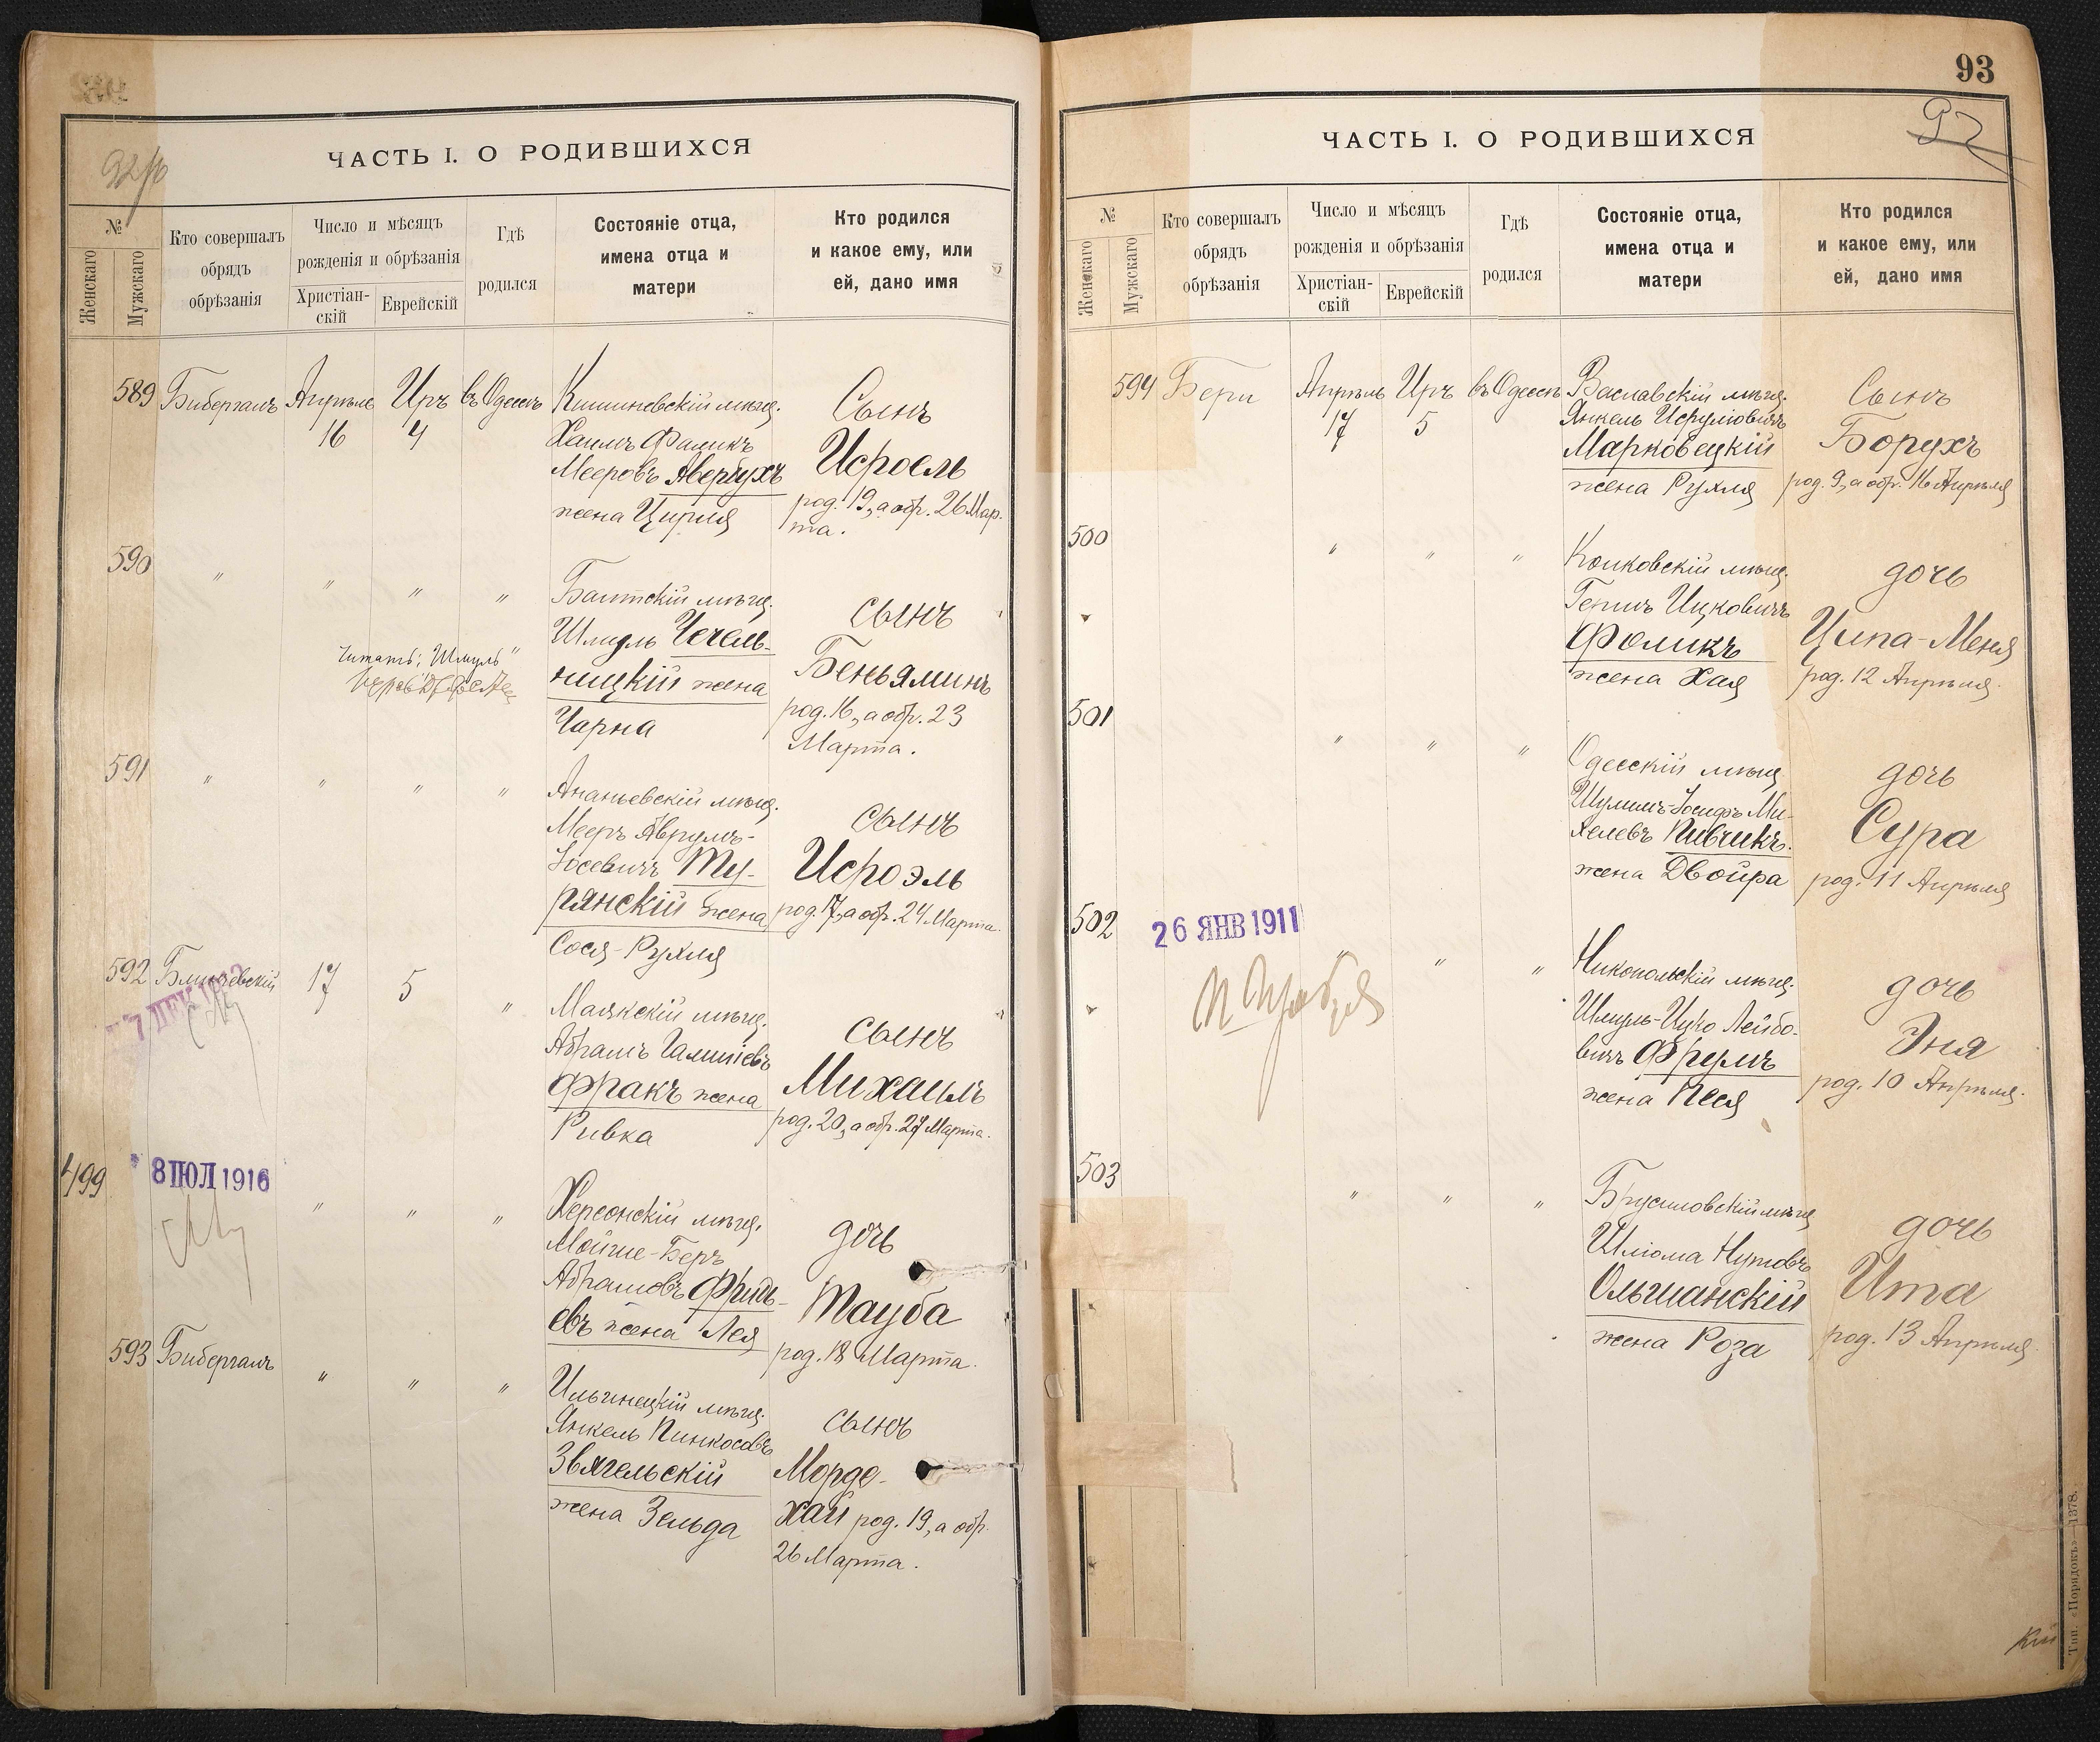 92 об
ЧАСТЬ I. О РОДИВШИХСЯ
№
Женскаго
Мужскаго
Кто совершалъ
обрядъ
обрѣзанія
Число и мѣсяцъ
рожденія и обрѣзанія
Христіан-
скій
Еврейскій
Гдѣ
родился
Состояніе отца,
имена отца и
матери
Кто родился
и какое ему, или
ей, дано имя
589
Бибергалъ
Апрѣль
16
Иръ
4
въ Одессѣ
Кишиневскій мѣщ.
Хаимъ Фаликъ
Мееровъ Авербухъ
жена Цирля
Сынъ
Исроель
род. 19, а обр. 26 Мар-
та.
590
" " " "
Балтскій мѣщ.
Шмудль Чечель-
ницкій жена
Чарна
сынъ
Беньяминъ
род. 16, а обр. 23
Марта.
Читать: "Шмуль"
591
" " " "
Ананьевскій мѣщ.
Мееръ Аврумъ-
Іосевичъ Ту-
рянскій жена
Сося-Рухля
сынъ
Исроэль
род. 17, а обр. 24 Марта.
592
17
5
"
Маякскій мѣщ.
Абрамъ
Фракъ жена
Ривка
сынъ
Михаилъ
род. 20, а обр. 27 Марта.
499
8 ІЮЛ 1916
" " "
Херсонскій мѣщ.
Мойше-Беръ
Абрамовъ Фридь-
евъ жена Лея
дочь
Тауба
род. 18 Марта.
593
Бибергалъ
" " "
Ильинецкій мѣщ.
Янкель Пинкосовъ
Звягельскій
жена Зельда
сынъ
Мордо-
хай род. 19, а обр.
26 Марта.
93
92
ЧАСТЬ I. О РОДИВШИХСЯ
№
Женскаго
Мужскаго
Кто совершалъ
обрядъ
обрѣзанія
Число и мѣсяцъ
рожденія и обрѣзанія
Христіан-
скій
Еврейскій
Гдѣ
родился
Состояніе отца,
имена отца и
матери
Кто родился
и какое ему, или
ей, дано имя
594
Бери
Апрѣль
17
Иръ
5
въ Одессѣ
Ваславскій мѣщ.
Янкель Исруліовичъ
Марковецкій
жена Рухля
Сынъ
Борухъ
род. 9, а обр. 16 Апрѣля
500
" " "
мѣщ.
Ицковичъ
Фоликъ
жена Хая
дочь
Ципа-Меня
род. 12 Апрѣля.
501
" " "
Одесскій мѣщ.
Шулимъ-Іосифъ Ми-
хелевъ Пивчикъ.
жена Двойра
дочь
Сура
род. 11 Апрѣля
502
26 ЯНВ 1911
" " "
Никопольскій мѣщ.
Шмуль-Ицко Лейбо-
вичъ Фрумъ
жена Песя
дочь
Эня
род. 10 Апрѣля.
503
" " "
Брусиловскій мѣщ.
Шліома Нутовъ
Ольшанскій
жена Роза
дочь
Ита
род. 13 Апрѣля.
Тип. «Порядокъ»—1378.